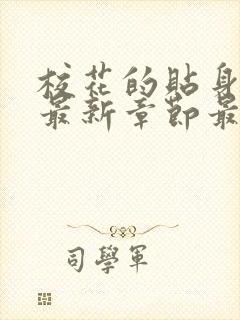 校花的贴身
最新章節最
司學軍